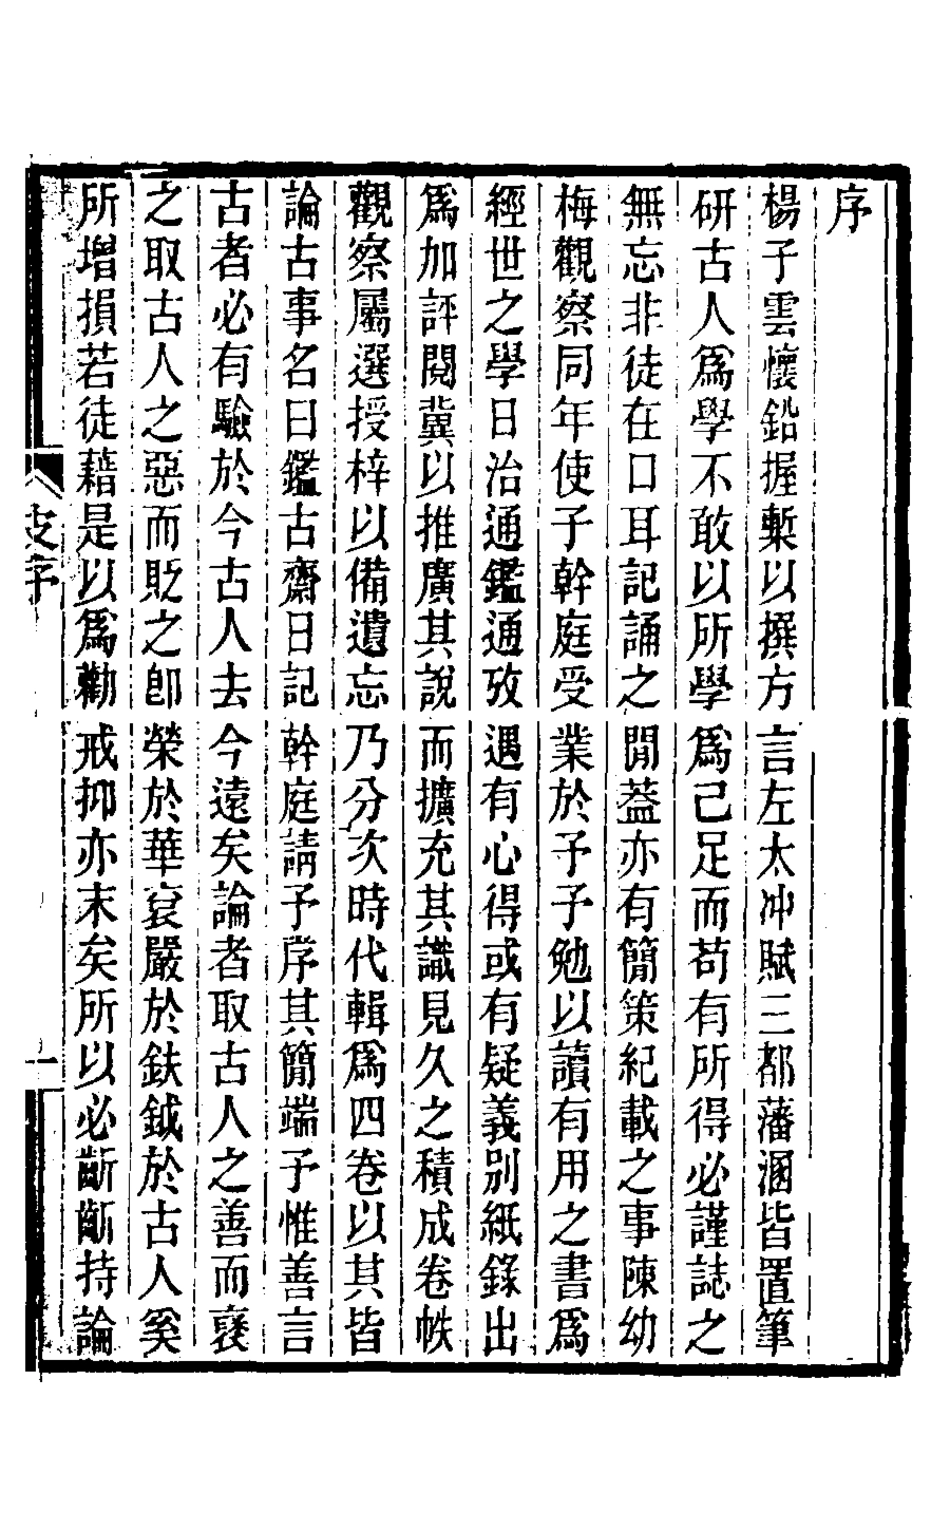 序
楊子雲懷鉛握槧以撰方言左太冲賦三都藩溷皆置筆
研古人爲學不敢以所學爲己足而苟有所得必謹誌之
無忘非徒在口耳記誦之閒蓋亦有簡策紀載之事陳幼
梅觀察同年使子幹庭受業於予予勉以讀有用之書爲
經世之學日治通鑑通攷遇有心得或有疑義別紙錄出
爲加評閱冀以推廣其說而擴充其識見久之積成卷帙
觀察屬選授梓以備遺忘乃分次時代輯爲四卷以其皆
論古事名曰鑑古齋日記幹庭請予序其簡端予惟善言
古者必有驗於今古人去今遠矣論者取古人之善而襃
之取古人之惡而貶之卽榮於華袞嚴於鈇鉞於古人奚
所增損若徒藉是以爲勸戒抑亦末矣所以必齗齗持論
皮序
一